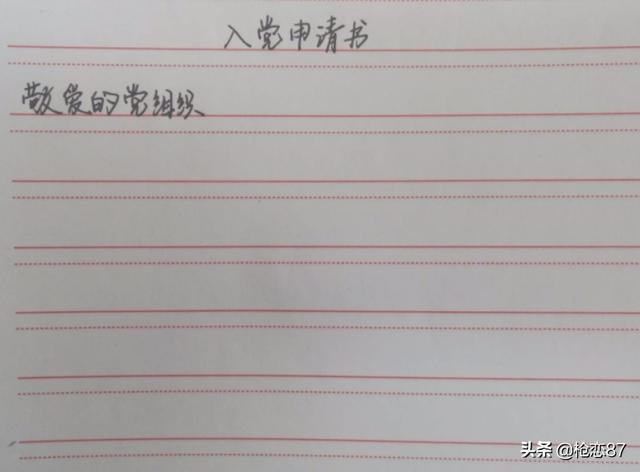 入党申请书
敬爱的党组织
头条 @枪恋87